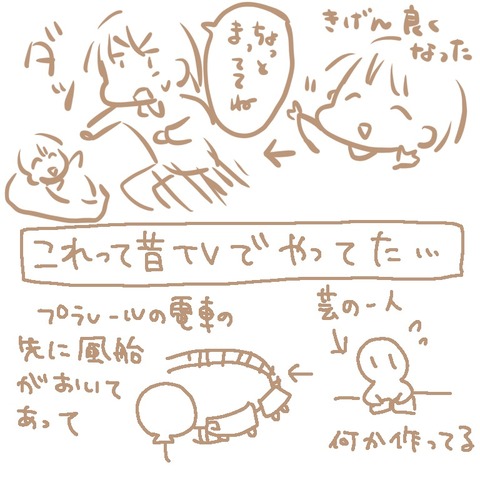 きげん良く
なった
ちょっと
まっててね
ダッ
これって昔TVでやってた…
プラレールの電車の
先に風船
がおいて
あって
芸の一人
何か作ってる